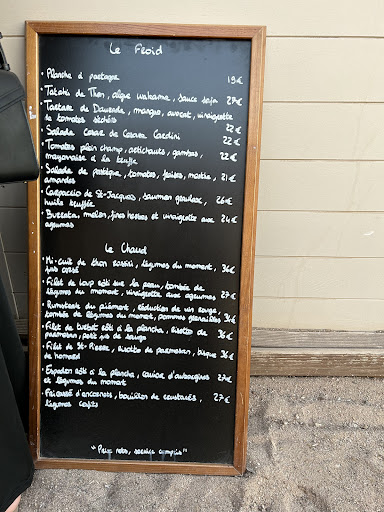 Le Froid
• Planche à partager 19€
• Tataki de Thon, algue wakame, sauce soja 27€
• Tartare de Daurade, mangue, avocat, vinaigrette
de tomates séchées 22€
• Salade César de Cesare Cardini 22€
• Tomates plein champ, artichauts, gambas,
mayonnaise à la truffe 22€
• Salade de pastèque, tomates, fraises, menthe, 21€
amandes
• Carpaccio de St-Jacques, saumon gravlax, 26€
huile truffée
• Burrata, melon, fines herbes et vinaigrette aux 24€
agrumes
Le Chaud
• Mi-cuit de thon, légumes du moment, 36€
jus corsé
• Filet de loup rôti sur la peau, tombée de
légumes du moment, vinaigrette aux agrumes 27€
• Rumsteak du piémont, réduction de vin rouge,
tombée de légumes du moment, pommes grenailles 36€
• Filet de turbot rôti à la plancha, risotto de 36€
parmesan, petit jus de
• Filet de St-Pierre, risotto de parmesan, bisque 36€
de homard
• Espadon rôti à la plancha, caviar d'aubergines 27€
et légumes du moment
• d'encornets, bouillon de crustacés, 27€
légumes confits
"Prix nets, service compris"